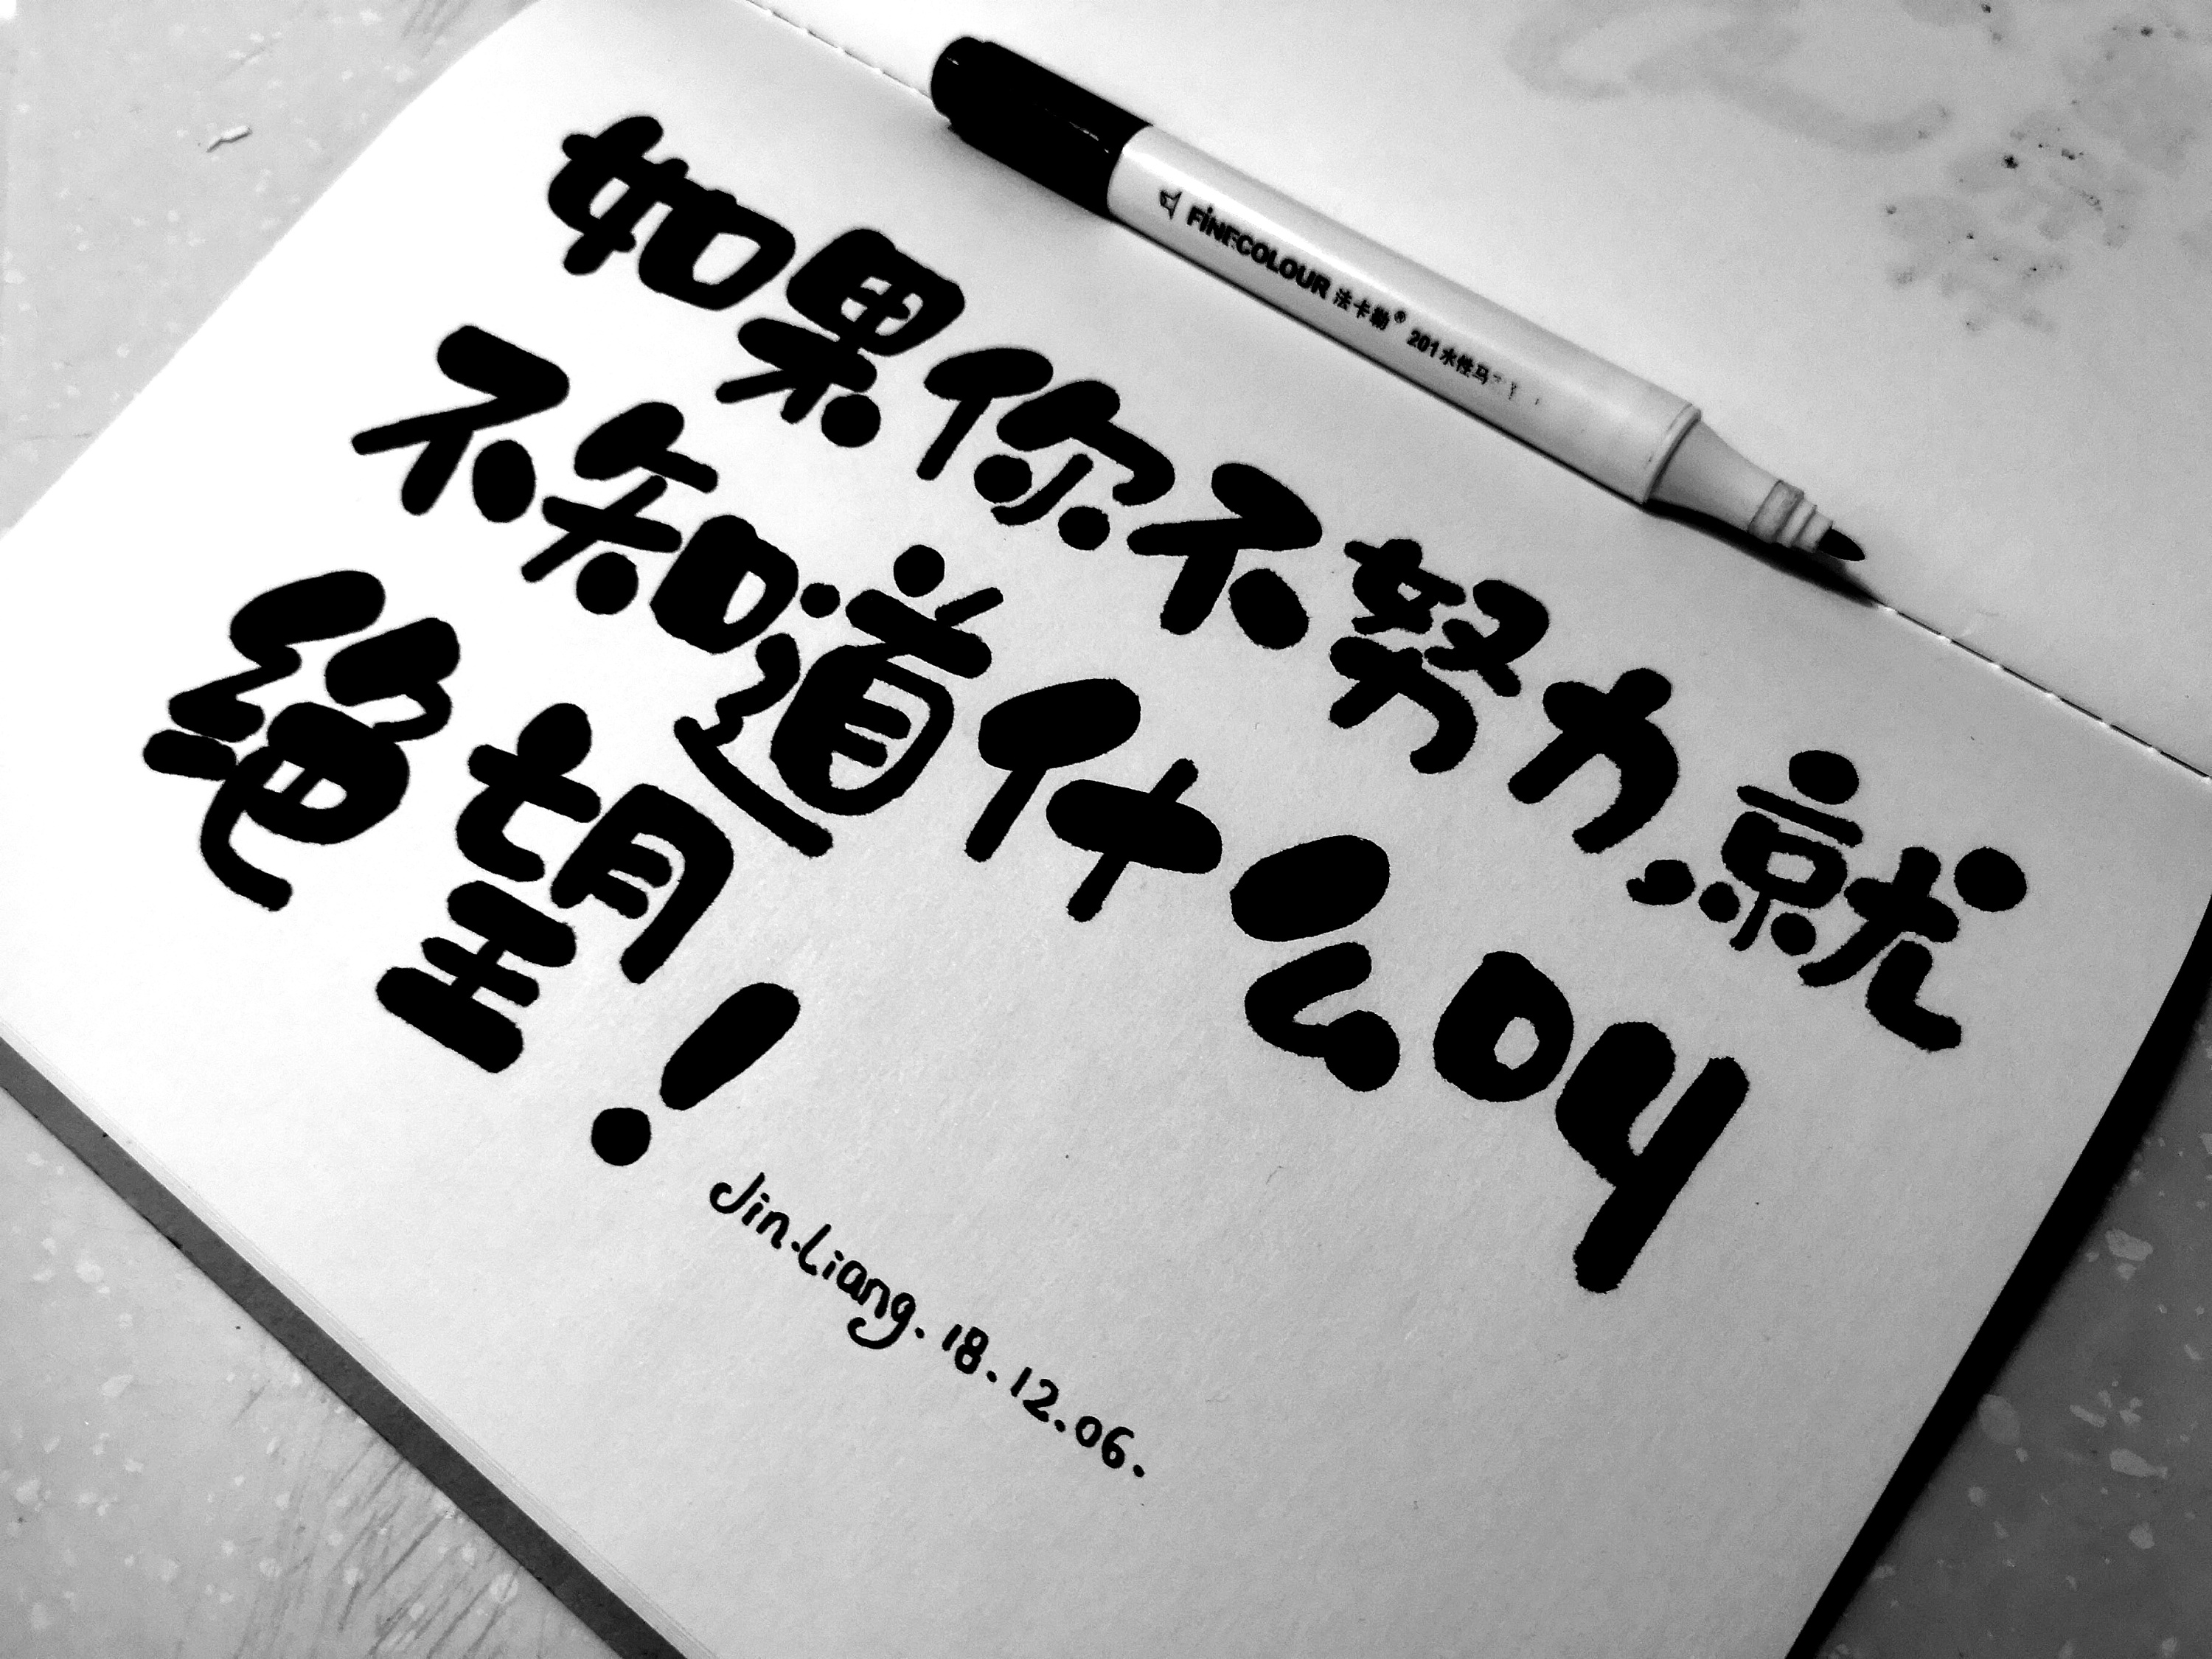 FINECOLOUR 法卡勒® 201水性马
如果你不努力,就
不知道什么叫
绝望!
Jin.Liang.18.12.06.